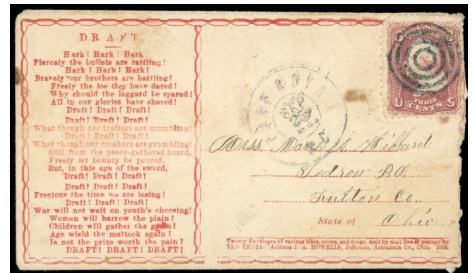 DRAFT
Hark! Hark! Hark!
Fiercely the bullets are rattling!
Hark! Hark! Hark!
Bravely our brothers are battling!
Freely the foe they have dared!
Why should the laggard be spared!
All in our glories have shared!
Draft! Draft! Draft!
Draft! Draft! Draft!
What though our traitors are mumbling!
Draft! Draft! Draft!
What though our croakers are grumbling!
Still from the peace-gathered hoard,
Freely let bounty be poured.
But, in this age of the sword,
Draft! Draft! Draft!
Draft! Draft! Draft!
Precious the time we are losing!
Draft! Draft! Draft!
War will not wait on youth's choosing!
Women will harrow the plain!
Children will gather the grain!
Age wield the mattock again!
Is not the prize worth the pain?
DRAFT! DRAFT! DRAFT!
U S
THREE
CENTS
Miss Hibbard
P.O.
Fulton Co.
State of Ohio
Twenty Envelopes of various sizes, colors, and songs, sent by mail free of postage for
TEN CENTS Address J. A. HOWELLS, Jefferson, Ashtabula Co., Ohio.